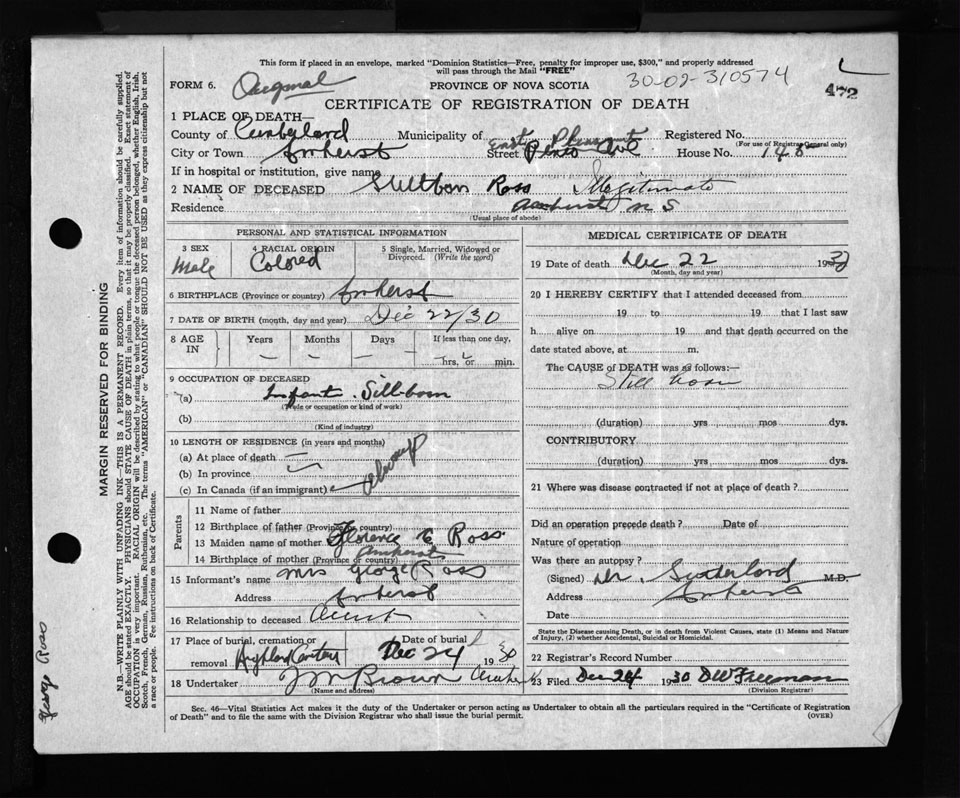 This form if placed in an envelope, marked "Dominion Statistics—Free, penalty for improper use, $300," and properly addressed
will pass through the Mail "FREE"
FORM 6. Original PROVINCE OF NOVA SCOTIA 30-02-310574
472
CERTIFICATE OF REGISTRATION OF DEATH
1 PLACE OF DEATH—
County of Cumberland Municipality of East Registered No.
(For use of Registrar General only)
City or Town Amherst Street Ave House No. 148
If in hospital or institution, give name
2 NAME OF DECEASED Stillborn Ross Illegitimate
Residence Amherst N S
(Usual place of abode)
PERSONAL AND STATISTICAL INFORMATION
3 SEX Male 4 RACIAL ORIGIN Colored 5 Single, Married, Widowed or Divorced. (Write the word)
6 BIRTHPLACE (Province or country) Amherst
7 DATE OF BIRTH (month, day and year) Dec 22/30
8 AGE IN Years Months Days If less than one day,
— — — hrs. or min.
9 OCCUPATION OF DECEASED
(a) Infant. Still-born
(Trade or occupation or kind of work)
(b)
(Kind of industry)
10 LENGTH OF RESIDENCE (in years and months)
(a) At place of death —
(b) In province
(c) In Canada (if an immigrant)
Parents
11 Name of father
12 Birthplace of father (Province or country)
13 Maiden name of mother Florence E Ross
14 Birthplace of mother (Province or country) Amherst
15 Informant's name Mrs George Ross
Address Amherst
16 Relationship to deceased Aunt
17 Place of burial, cremation or removal Highland Date of burial Dec 24 1930
18 Undertaker J M Brown Amherst
(Name and address)
MEDICAL CERTIFICATE OF DEATH
19 Date of death Dec 22 1930
(Month, day and year)
20 I HEREBY CERTIFY that I attended deceased from
19 to 19 that I last saw
h alive on 19 and that death occurred on
date stated above, at m.
The CAUSE of DEATH was as follows:—
Still born
(duration) yrs mos dys.
CONTRIBUTORY
(duration) yrs mos dys.
21 Where was disease contracted if not at place of death?
Did an operation precede death? Date of
Nature of operation
Was there an autopsy?
(Signed) Dr. Sutherland M.D.
Address Amherst
Date
State the Disease causing Death, or in death from Violent Causes, state (1) Means and Nature
of Injury, (2) whether Accidental, Suicidal or Homicidal.
22 Registrar's Record Number
23 Filed Dec 24 1930 DW Freeman
(Division Registrar)
Sec. 46—Vital Statistics Act makes it the duty of the Undertaker or person acting as Undertaker to obtain all the particulars required in the "Certificate of Registration
of Death" and to file the same with the Division Registrar who shall issue the burial permit. (OVER)
MARGIN RESERVED FOR BINDING
N.B.—WRITE PLAINLY WITH UNFADING INK—THIS IS A PERMANENT RECORD. Every item of information should be carefully supplied.
AGE should be stated EXACTLY. PHYSICIANS should STATE CAUSE OF DEATH in plain terms, so that it may be properly classified. Exact statement of
OCCUPATION is very important. RACIAL ORIGIN will be described by stating to what people or tongue the deceased person belonged, whether English, Irish,
Scotch, French, German, Russian, Ruthenian, etc. The terms "AMERICAN" or "CANADIAN" SHOULD NOT BE USED as they express citizenship but not
a race or people. See instructions on back of Certificate.
George Ross